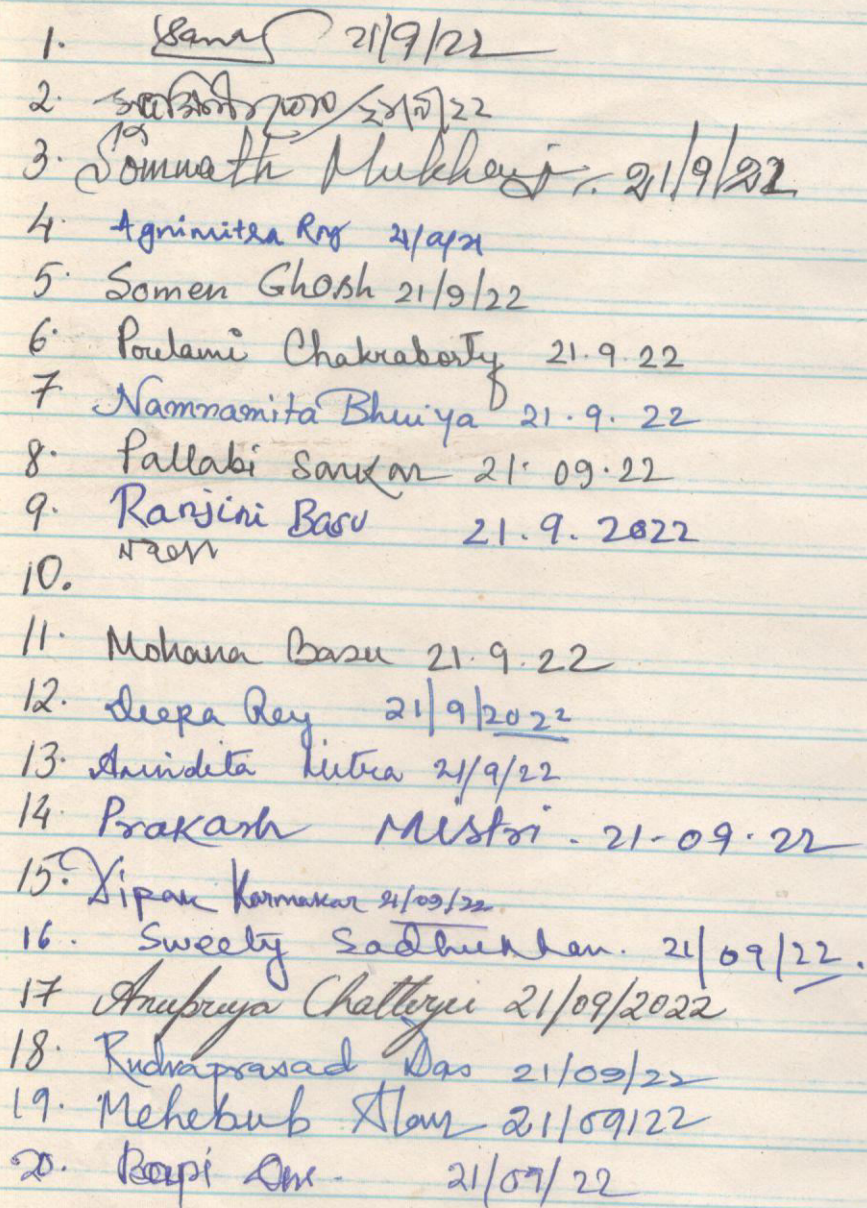 1. 21/9/22
2. 22
3. Somnath Mukherji 21/9/22
4. Agnimitra Roy
5. Somen Ghosh 21/9/22
6. Poulami Chakraborty 21.9.22
7 Namramita Bhuiya 21.9.22
8. Pallabi Sarkar 21.09.22
9. Ranjini Basu 21.9.2022
10.
11. Mohana Basu 21.9.22
12. Deepa Roy 21/9/2022
13. Anindita Mitra 21/9/22
14. Prakash Mistri. 21-09.22
15. Dipak Karmakar 21/09/22
16. Sweety Sadhukhan. 21/09/22.
17 Anupriya Chatterjee 21/09/2022
18. Rudraprasad Das 21/09/22
19. Mehebub Alam 21/09/22
20. Bapi 21/09/22